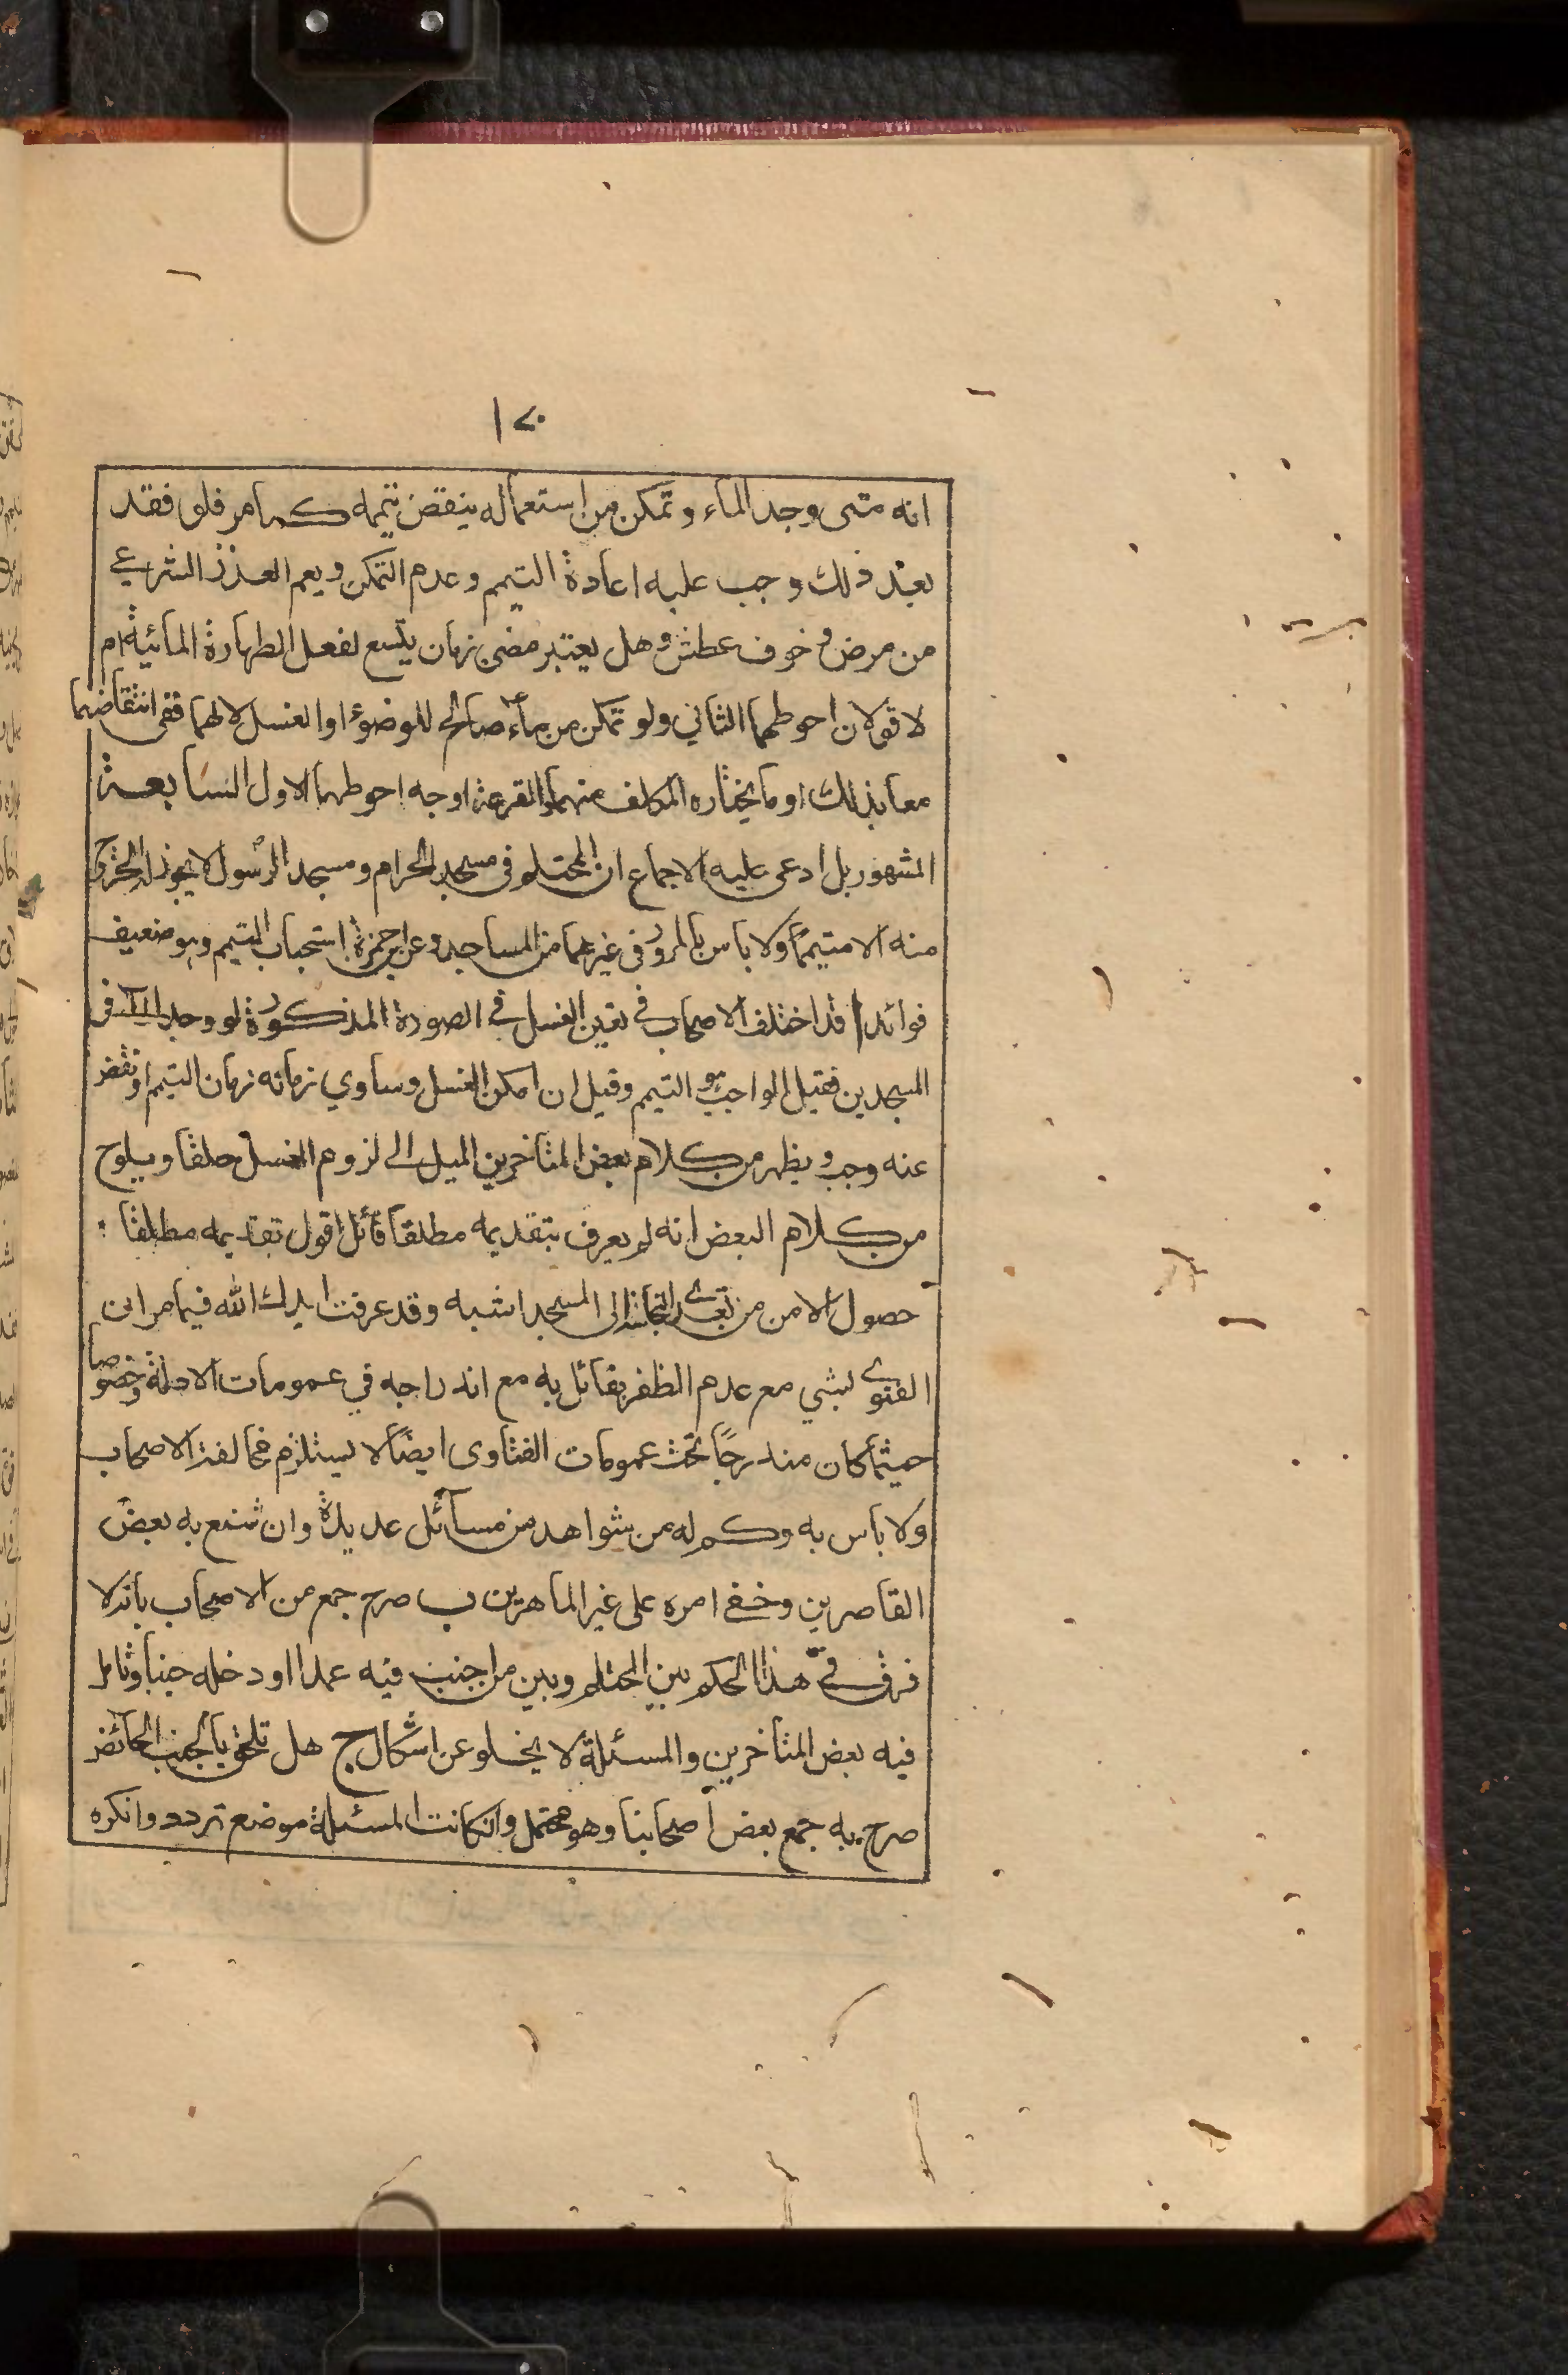 ١٢٠
انه متى وجد الماء وتمكن من استعماله ينقض تيممه كما مر فلو فقد
بعد ذلك وجب عليه اعادة التيمم وعدم التمكن ويعم العذر الشرعي
من مرض وخوف عطش وهل يعتبر مضى زمان يتسع لفعل الطهارة المائية ام
لا قولان احوطهما الثاني ولو تمكن من ماء صالح للوضوء او الغسل لا لهما ففى انتقاضهما
معا بذلك او ما يختاره المكلف منهما او القرعة اوجه احوطهما الاول السابعة
المشهور بل ادعى عليه الاجماع ان المحتلم فى مسجد الحرام ومسجد الرسول لا يجوز له الخروج
منه الا متيمماً ولا باس بالمرور فى غيرهما من المساجد وعن ابن حمزة استحباب التيمم وهو ضعيف
فوائد ا قد اختلف الاصحاب في تعين الغسل في الصورة المذكورة لو وجد الماء فى
المسجدين فقيل الواجب هو التيمم وقيل ان امكن الغسل وساوي زمانه زمان التيمم او نقص
عنه وجب ويظهر من كلام بعض المتاخرين الميل الى لزوم الغسل مطلقا ويلوح
من كلام البعض انه لم يعرف بتقديمه مطلقا قائل اقول تقديمه مطلقا
حصول الامن من تعدى النجاسة الى المسجد اشبه وقد عرفت ايدك الله فيما مر ان
الفتوى بشي مع عدم الظفر بقائل به مع اندراجه في عمومات الادلة وخصوصا
حيثما كان مندرجاً تحت عمومات الفتاوى ايضاً لا يستلزم مخالفة الاصحاب
ولا باس به وكم له من شواهد من مسائل عديدة وان شنع به بعض
القاصرين وخفي امره على غير الماهرين ب صرح جمع من الاصحاب بانه لا
فرق في هذا الحكم بين المحتلم وبين من اجنب فيه عمدا او دخله جنبا وتامل
فيه بعض المتاخرين والمسئلة لا يخلو عن اشكال ج هل تلحق بالجنب الحائض
صرح به جمع بعض اصحابنا وهو محتمل وان كانت المسئلة موضع تردد وانكره